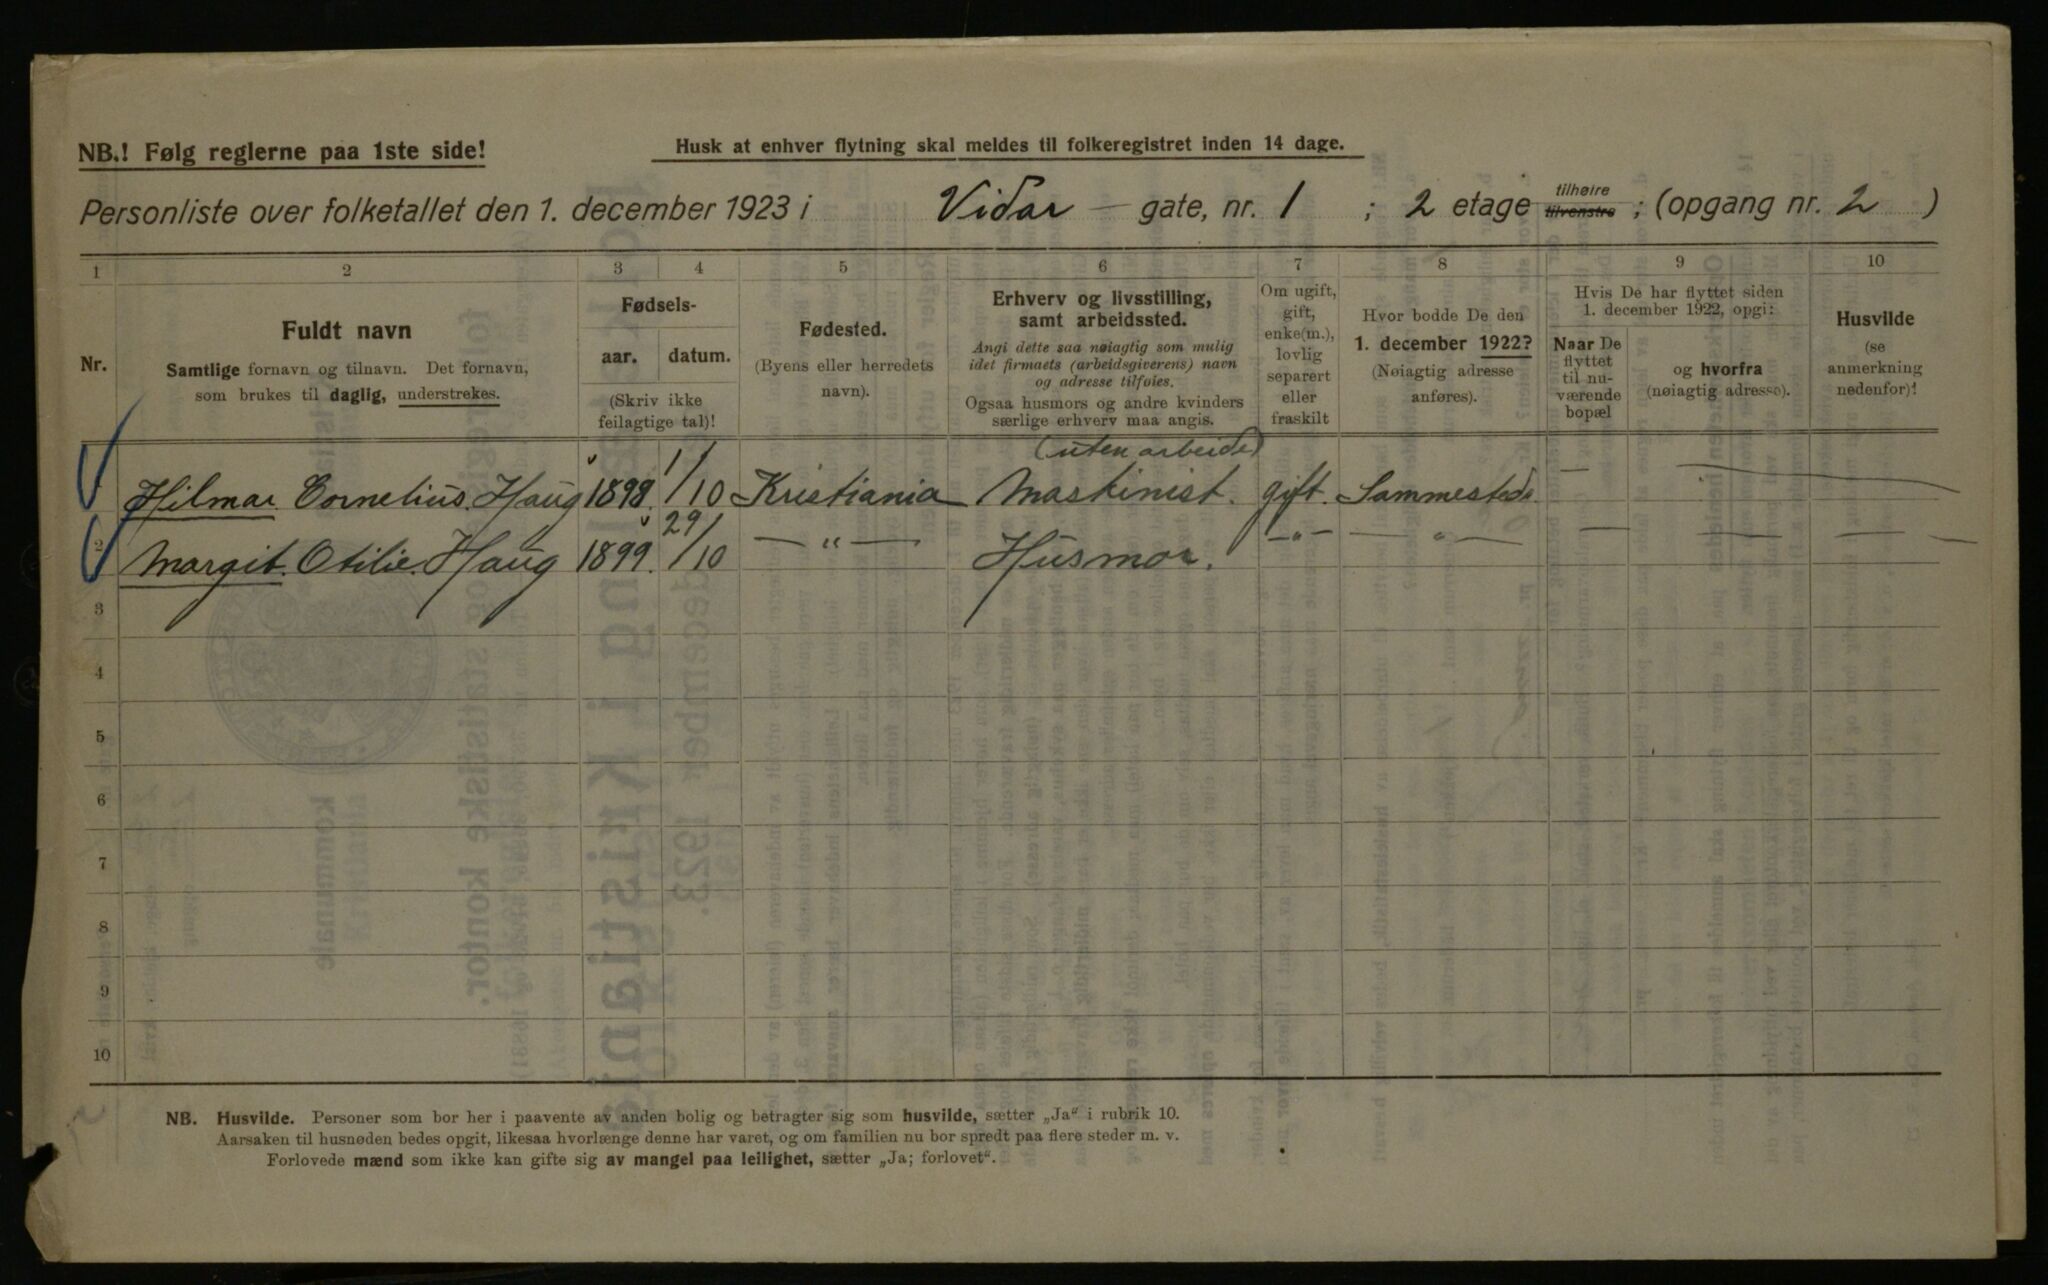 NB.! Følg reglerne paa 1ste side!
Husk at enhver flytning skal meldes til folkeregistret inden 14 dage.
Personliste over folketallet den 1. december 1923 i Vidar — gate, nr. 1 ; 2 etage tilhøire tilvenstre ; (opgang nr. 2 )
1 2 3 4 5 6 7 8 9 10
Nr.
Fuldt navn
Samtlige fornavn og tilnavn. Det fornavn,
som brukes til daglig, understrekes.
Fødsels-
aar. datum.
(Skriv ikke
feilagtige tal)!
Fødested.
(Byens eller herredets
navn).
Erhverv og livsstilling,
samt arbeidssted.
Angi dette saa nøiagtig som mulig
idet firmaets (arbeidsgiverens) navn
og adresse tilføies.
Ogsaa husmors og andre kvinders
særlige erhverv maa angis.
Om ugift,
gift,
enke(m.),
lovlig
separert
eller
fraskilt
Hvor bodde De den
1. december 1922?
(Nøiagtig adresse
anføres).
Hvis De har flyttet siden
1. december 1922, opgi:
Naar De
flyttet
til nu-
værende
bopæl
og hvorfra
(nøiagtig adresse).
Husvilde
(se
anmerkning
nedenfor)!
(uten arbeide)
Hilmar Cornelius Haug 1898. 1/10 Kristiania Maskinist. gift. Sammesteds — —
2 Margit Otilie Haug 1899. 29/10 — „ — Husmor. — „ — — „ — — — —
3
4
5
6
7
8
9
10
NB. Husvilde. Personer som bor her i paavente av anden bolig og betragter sig som husvilde, sætter „Ja“ i rubrik 10.
Aarsaken til husnøden bedes opgit, likesaa hvorlænge denne har varet, og om familien nu bor spredt paa flere steder m. v.
Forlovede mænd som ikke kan gifte sig av mangel paa leilighet, sætter „Ja; forlovet“.